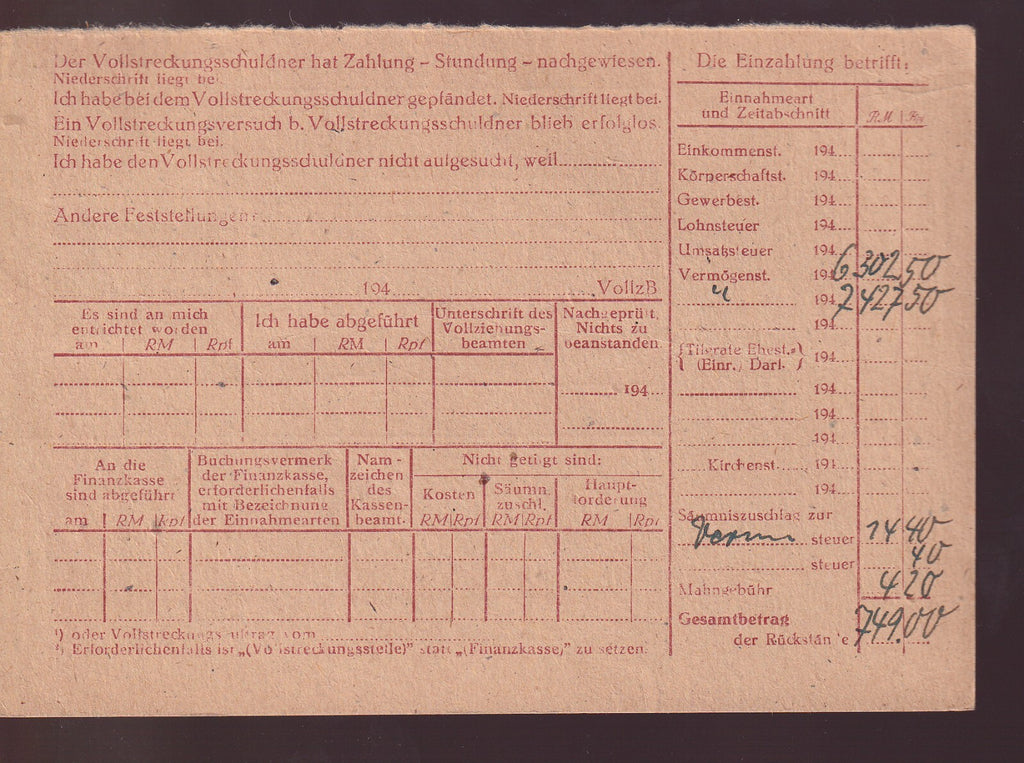 Der Vollstreckungsschuldner hat Zahlung – Stundung – nachgewiesen.
Niederschrift liegt bei.
Ich habe bei dem Vollstreckungsschuldner gepfändet. Niederschrift liegt bei.
Ein Vollstreckungsversuch b. Vollstreckungsschuldner blieb erfolglos.
Niederschrift liegt bei.
Ich habe den Vollstreckungsschuldner nicht aufgesucht, weil
Andere Feststellungen:
, 194 VollzB
Es sind an mich
entrichtet worden
am RM Rpf
Ich habe abgeführt
am RM Rpf
Unterschrift des
Vollziehungs-
beamten
Nachgeprüft,
Nichts zu
beanstanden
194
An die
Finanzkasse
sind abgeführt
am RM Rpf
Buchungsvermerk
der Finanzkasse,
erforderlichenfalls
mit Bezeichnung
der Einnahmearten
Nam-
zeichen
des
Kassen-
beamt.
Nicht getilgt sind:
Kosten
RM Rpf
Säumn.
zuschl.
RM Rpf
Haupt-
forderung
RM Rpf
¹) oder Vollstreckungsauftrag vom
²) Erforderlichenfalls ist „(Vollstreckungsstelle)" statt „(Finanzkasse)" zu setzen.
Die Einzahlung betrifft:
Einnahmeart
und Zeitabschnitt RM Rpf
Einkommenst. 194
Körperschaftst. 194
Gewerbest. 194
Lohnsteuer 194
Umsatzsteuer 194
Vermögenst. 194 6 302,50
" 194 7 427 50
194
(Tilgrate Ehest.=) 194
(Einr.) Darl.
194
194
194
Kirchenst. 194
194
Säumniszuschlag zur
Verm steuer 14 40
steuer 40
Mahngebühr 4 20
Gesamtbetrag
der Rückstände 749.00